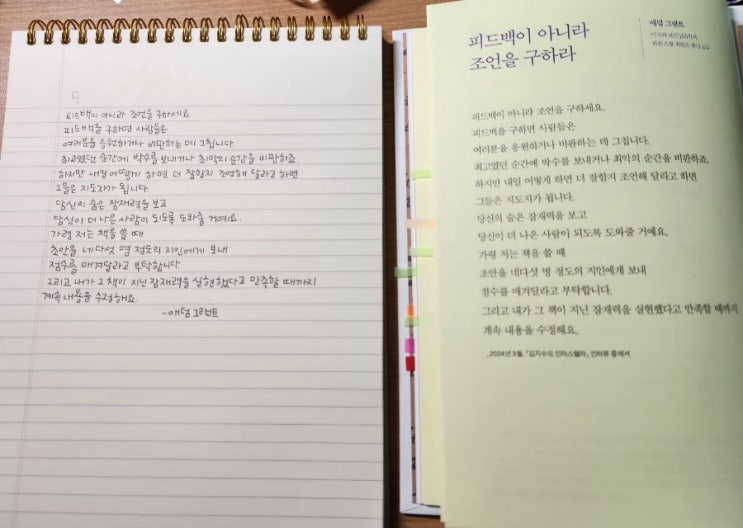 9
피드백이 아니라 조언을 구하세요
피드백을 구하면 사람들은
여러분을 응원하거나 비판하는 데 그칩니다.
최고였던 순간에 박수를 보내거나 최악의 순간을 비판하죠.
하지만 내일 어떻게 하면 더 잘할지 조언해 달라고 하면
그들은 지도자가 됩니다
당신의 숨은 잠재력을 보고
당신이 더 나은 사람이 되도록 도와줄 거예요.
가령 저는 책을 쓸 때
초안을 네다섯 명 정도의 지인에게 보내
점수를 매겨달라고 부탁합니다
그리고 내가 그 책이 지닌 잠재력을 실현했다고 만족할 때까지
계속 내용을 수정해요.
-애덤 그랜트
피드백이 아니라
조언을 구하라
애덤 그랜트
피드백이 아니라 조언을 구하세요.
피드백을 구하면 사람들은
여러분을 응원하거나 비판하는 데 그칩니다.
최고였던 순간에 박수를 보내거나 최악의 순간을 비판하죠.
하지만 내일 어떻게 하면 더 잘할지 조언해 달라고 하면
그들은 지도자가 됩니다.
당신의 숨은 잠재력을 보고
당신이 더 나은 사람이 되도록 도와줄 거예요.
가령 저는 책을 쓸 때
초안을 네다섯 명 정도의 지인에게 보내
점수를 매겨달라고 부탁합니다.
그리고 내가 그 책이 지닌 잠재력을 실현했다고 만족할 때까지
계속 내용을 수정해요.
_2024년 3월, 「김지수의 인터스텔라」 인터뷰 중에서